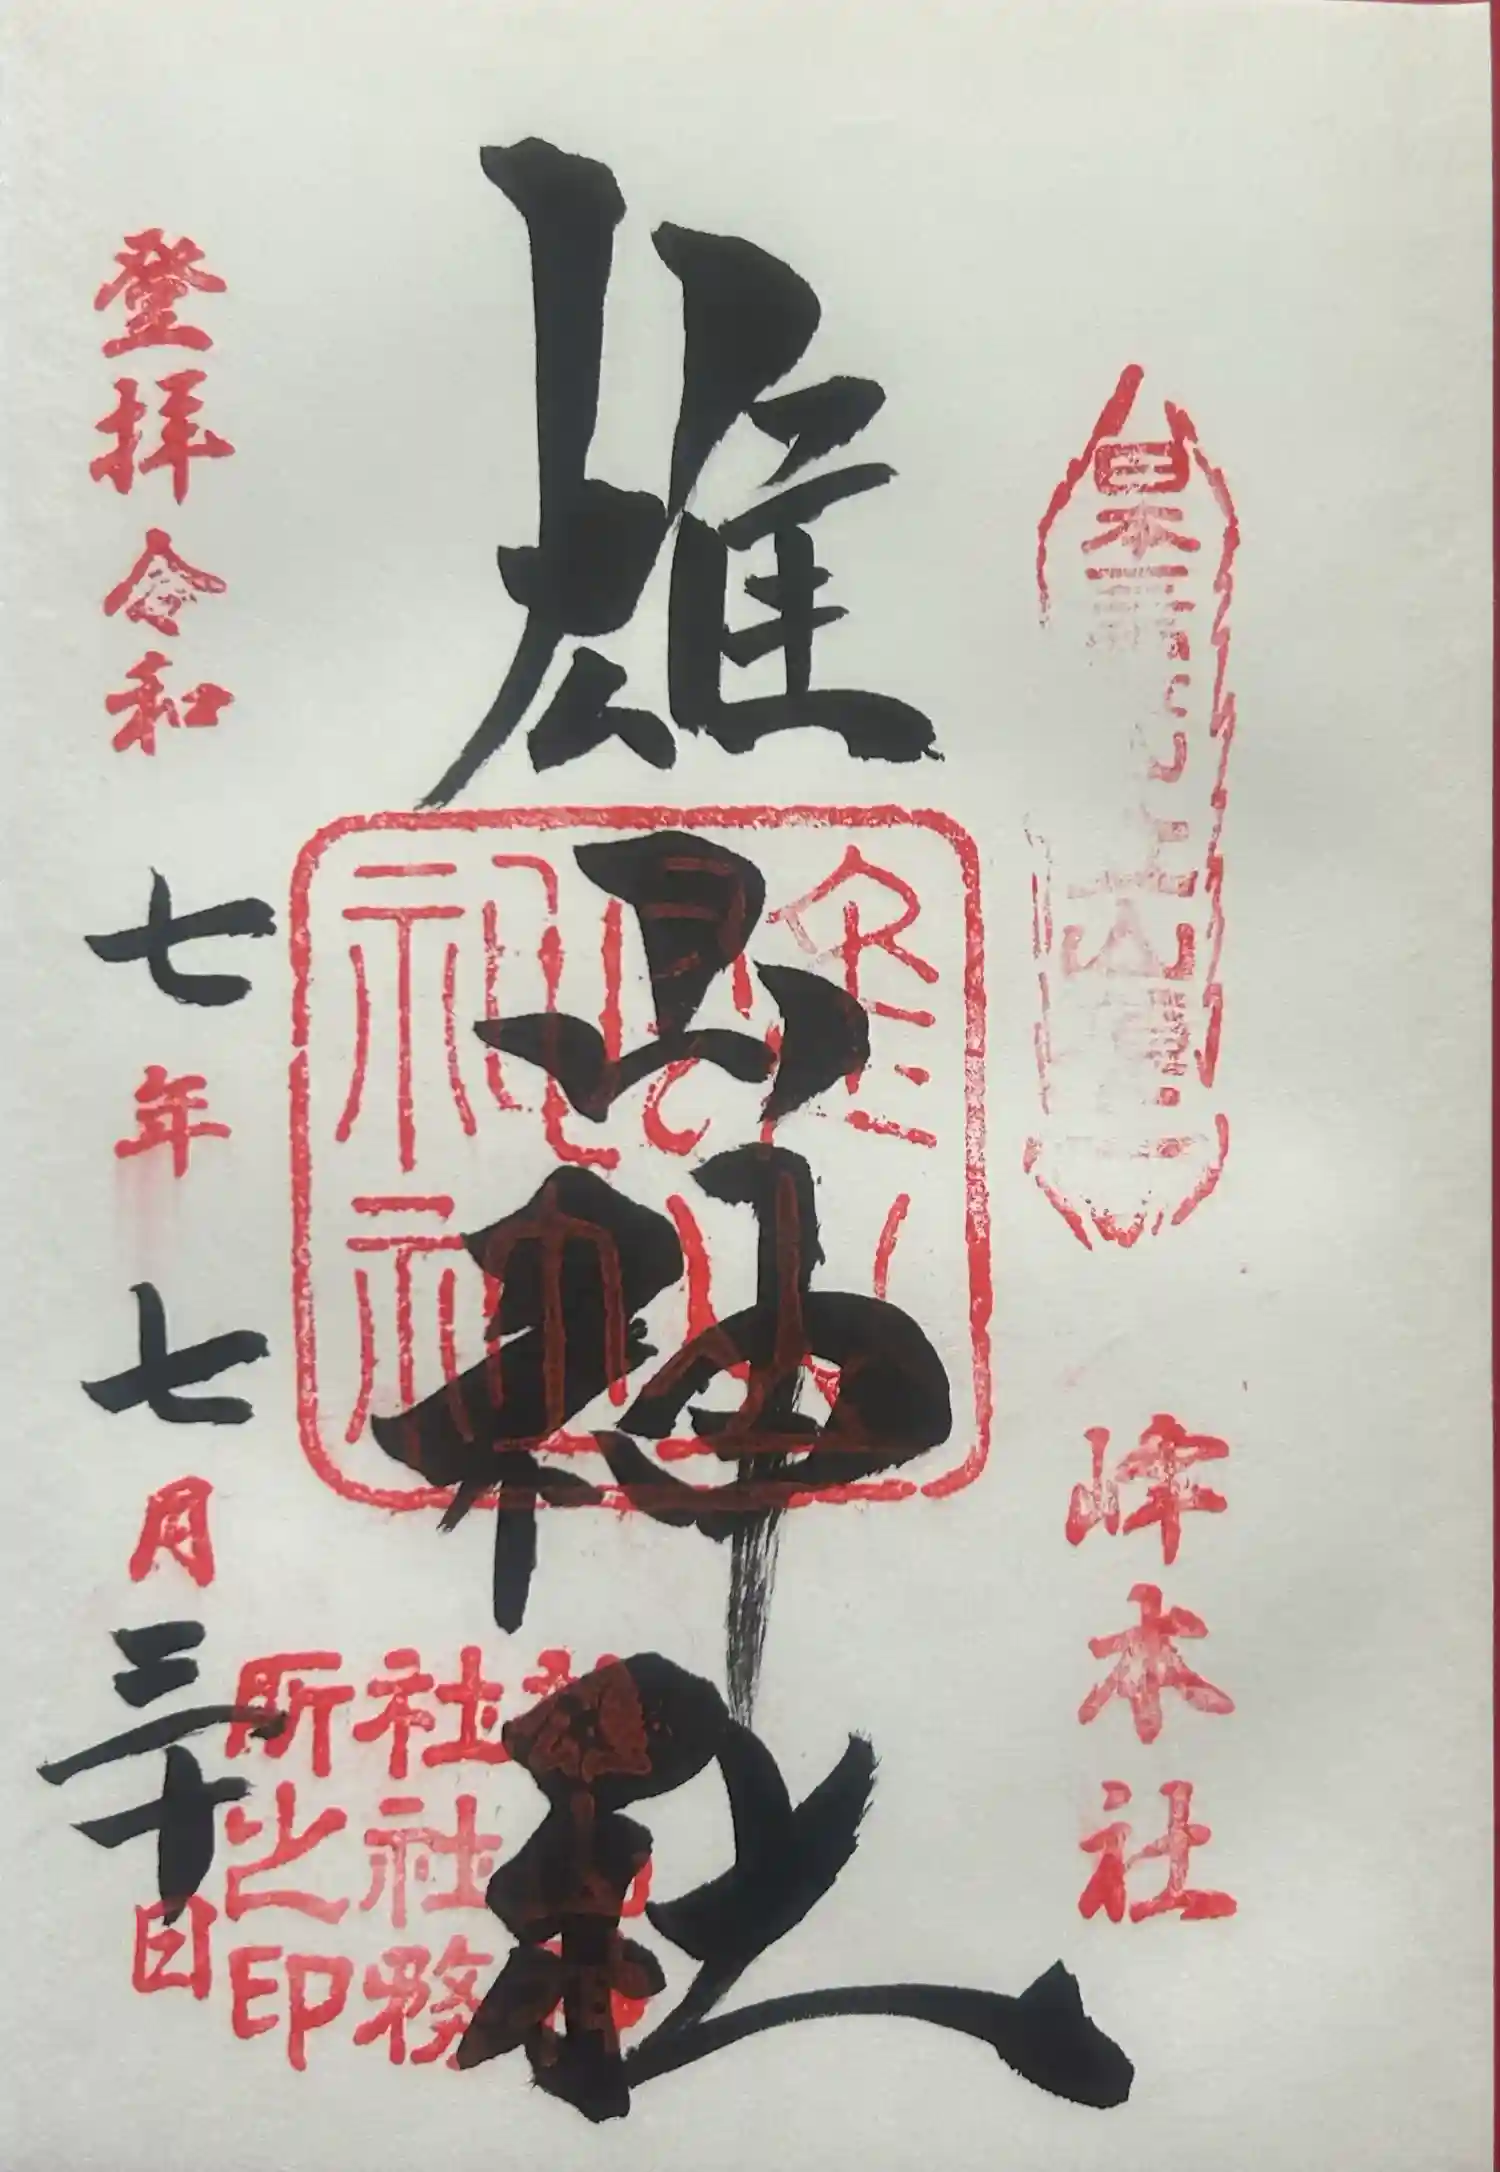 日本
山
峰本社
雄山神社
雄山神社
雄山神社社務所之印
登拝令和七年七月三十日